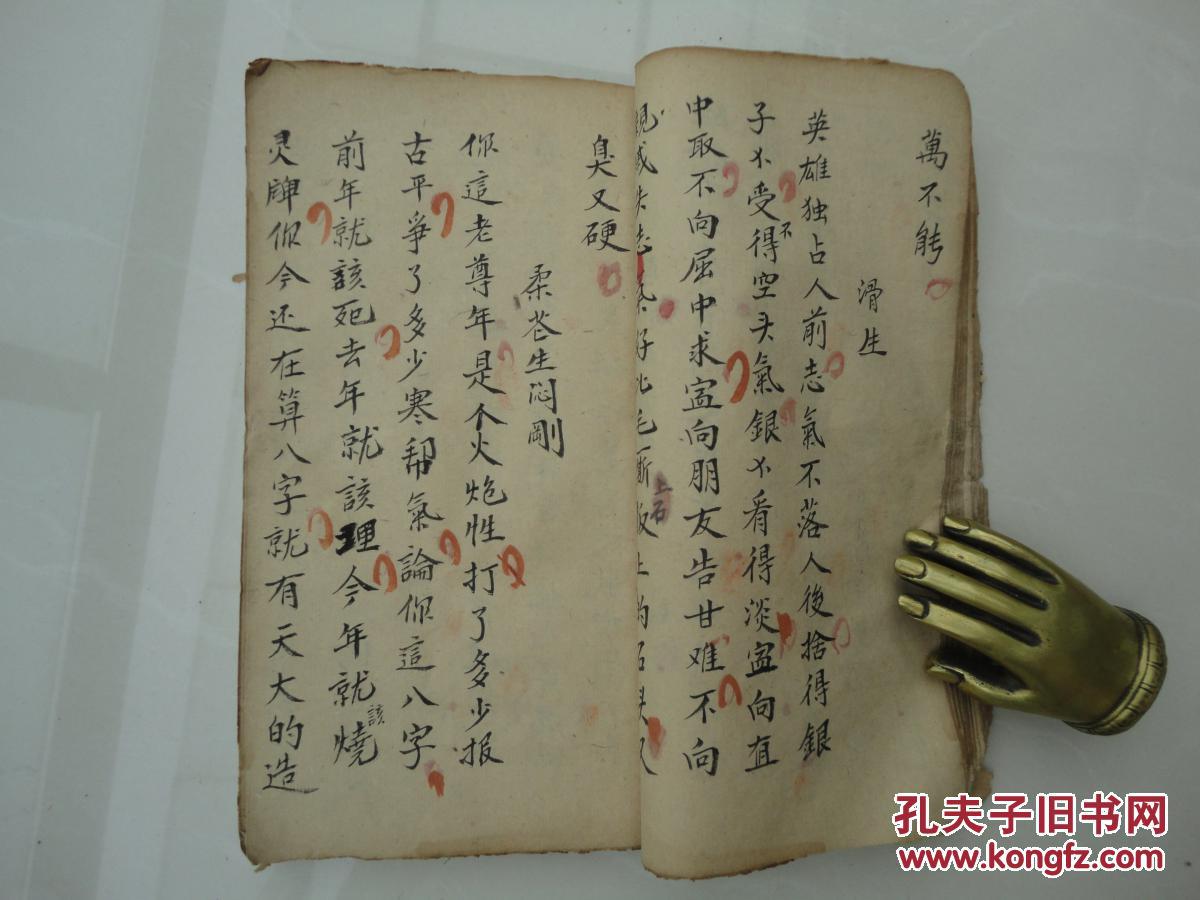 萬不能
滑生
英雄独占人前志氣不落人後捨得銀
子不受不得空头氣銀不看得淡寍向直
中取不向屈中求寍向朋友告甘难不向
親戚失志
上石
臭又硬
柔苍生闷剛
你這老尊年是个火炮性打了多少报
古平爭了多少寒帮氣論你這八字
前年就該死去年就該理今年就該燒
灵牌你今还在算八字就有天大的造
孔夫子旧书网
www.kongfz.com